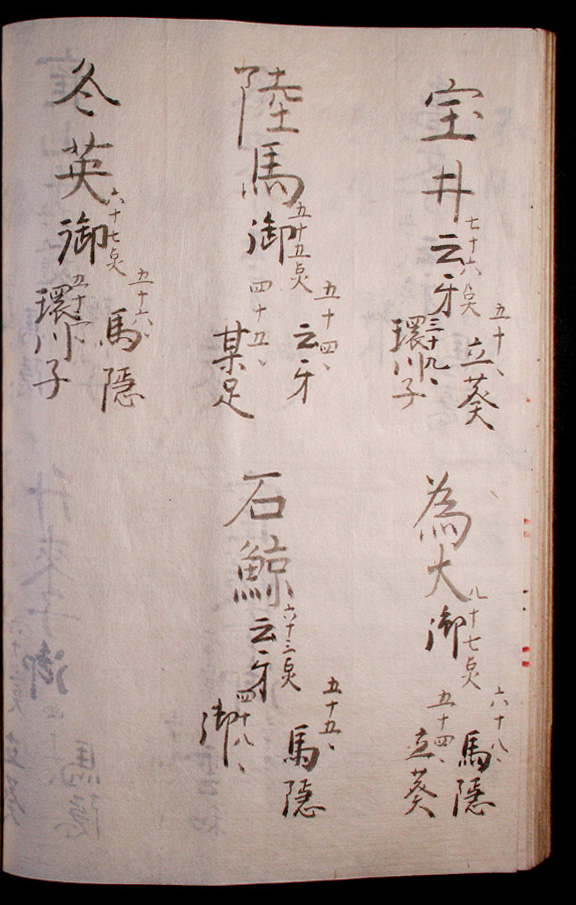 宝井
七十六点
云牙
五十、
立葵
三十九、
環川子
為大
八十七点
御
六十八、
馬隠
五十四、
立葵
陸馬
五十五点
御
五十四、
云牙
四十五、
某足
石鯨
六十三点
云牙
五十五、
馬隠
四十八、
御
冬英
六十七点
御
五十六、
馬隠
環川子